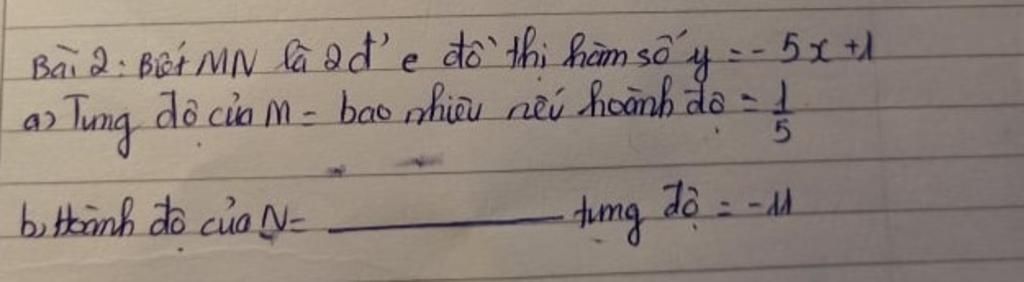 Bài 2: Biết MN là 2 đ' e đồ thị hàm số y = - 5x + 1
a) Tung độ của M = bao nhiêu nếu hoành độ = 1/5
b, Hoành độ của N = __________ tung độ = -11